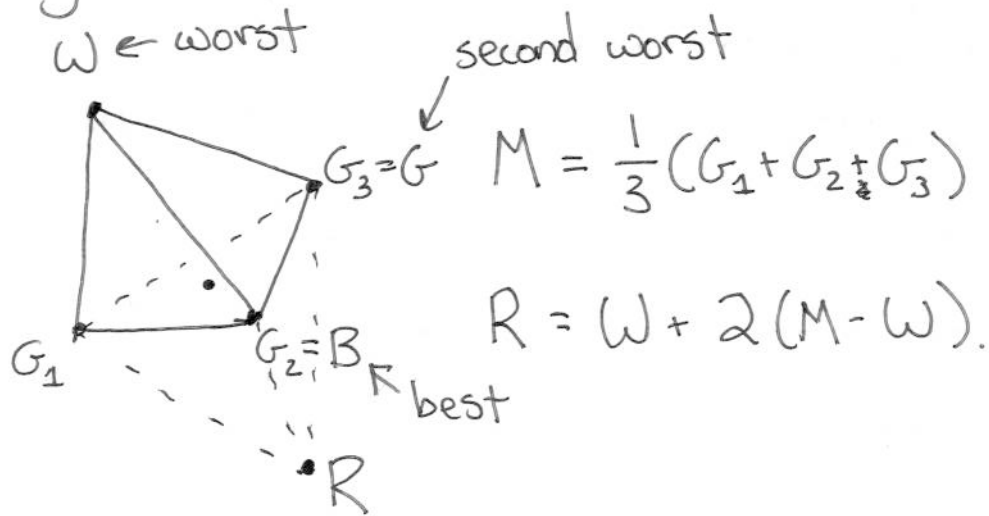 W ← worst
second worst
G₃=G
M = 1/3 (G₁ + G₂ + G₃)
R = W + 2(M - W).
G₁
G₂=B
best
R